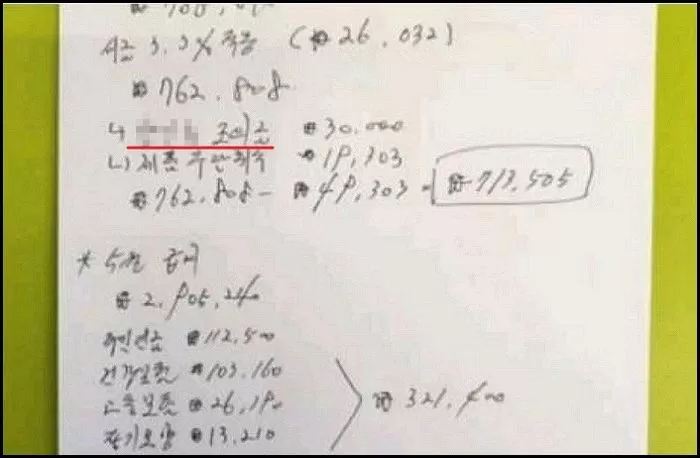 세금 3.3% 적용 (₩26,032)
₩762,808
ㄴ 조의금 ₩30,000
ㄴ) 제품 주문취소 ₩19,303
₩762,808 - ₩49,303 = ₩713,505
* 급여
₩2,905,240
국민연금 ₩112,500
건강보험 ₩103,160
고용보험 ₩26,190
장기요양 ₩13,210
₩321,400